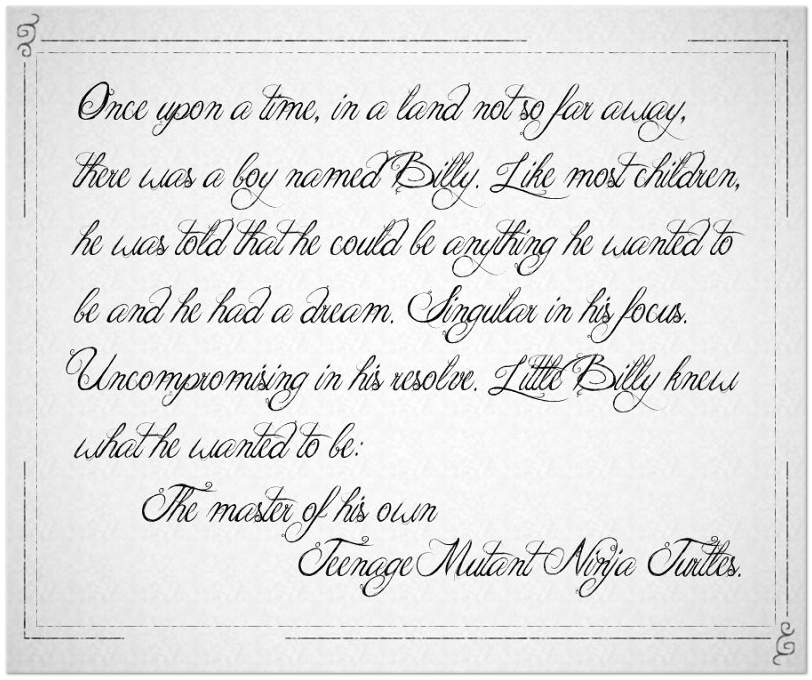 Once upon a time, in a land not so far away,
there was a boy named Billy. Like most children,
he was told that he could be anything he wanted to
be and he had a dream. Singular in his focus.
Uncompromising in his resolve. Little Billy knew
what he wanted to be:
The master of his own
Teenage Mutant Ninja Turtles.